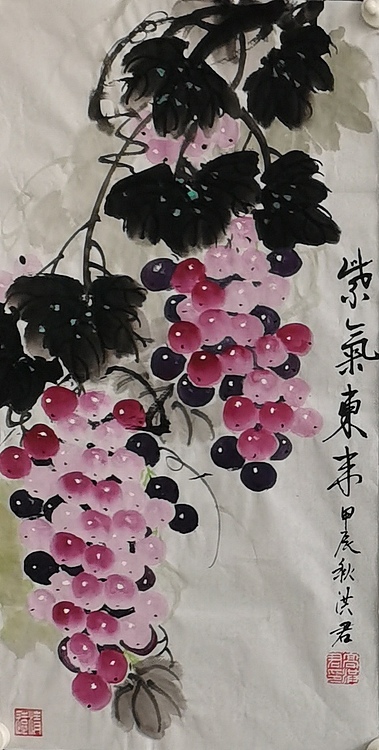 紫氣東来
甲辰秋洪君